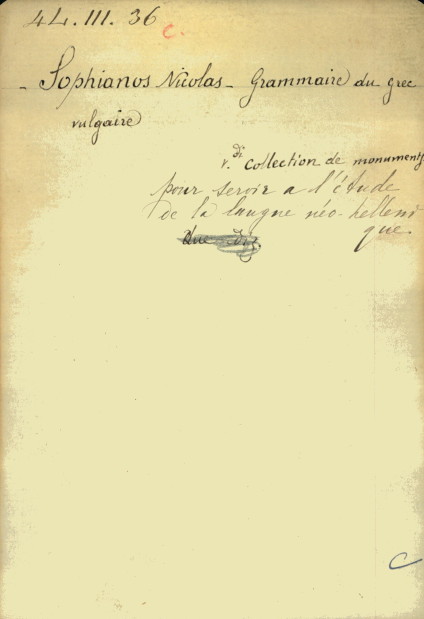 44. III. 36
c.
- Sophianos Nicolas - Grammaire du grec
vulgaire
v. di collection de monuments
pour servir a l'étude
de la langue néo-helleni
que
C